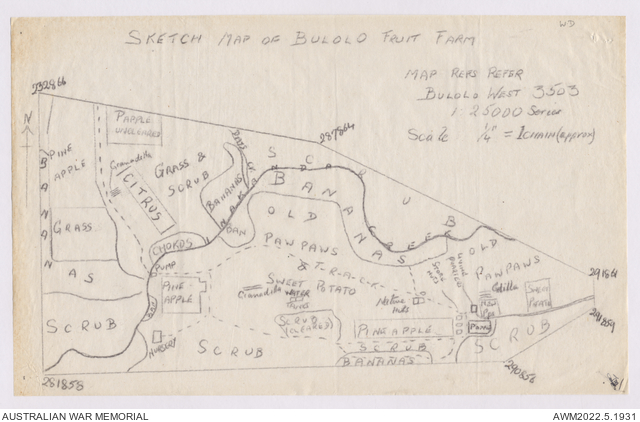 WD
SKETCH MAP OF BULOLO FRUIT FARM
MAP REFS REFER
BULOLO WEST 3503
1:25000 Series
Scale ¼" = 1 CHAIN (approx)
232866
287864
N
PINE
APPLE
BANANAS
PAPPLE
UNCLEARED
Granadilla
CITRUS
GRASS &
SCRUB
BANANAS
SCRUB
CREEK
BANANAS
OLD
PAWPAWS
GRASS
CHOKOS
DAM
PUMP
PINE
APPLE
TRACK
SWEET
POTATO
Granadilla
WATER
TANKS
Native
huts
OLD
PAWPAWS
291861
291859
SCRUB
NURSERY
SCRUB
SCRUB
(CLEARED)
PINEAPPLE
SCRUB
BANANAS
SCRUB
281858
290856
AUSTRALIAN WAR MEMORIAL
AWM2022.5.1931